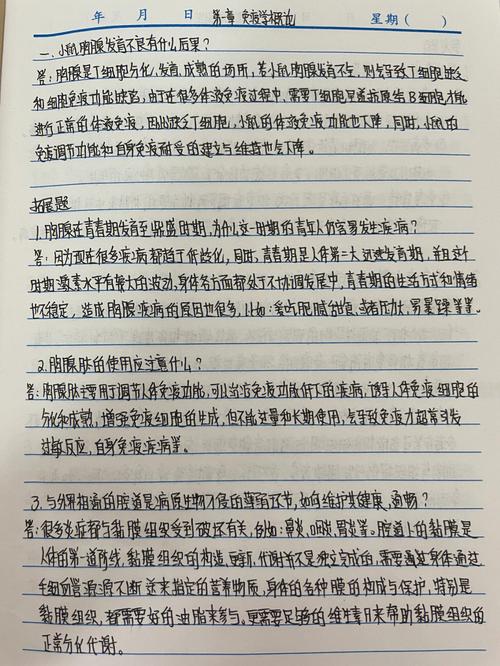 年 月 日 第一章 免疫学概论 星期（ ）
一、小鼠胸腺发育不良有什么后果？
答：胸腺是T细胞分化、发育、成熟的场所，若小鼠胸腺发育不全，则会导致T细胞缺乏
和细胞免疫功能缺陷，由于在很多体液免疫过程中，需要T细胞呈递抗原给B细胞才能
进行正常的体液免疫，因此缺乏T细胞，小鼠的体液免疫功能也下降，同时，小鼠的
免疫调节功能和自身免疫耐受的建立与维持也会下降。
拓展题
1.胸腺在青春期发育至鼎盛时期，为什么这一时期的青年人仍容易发生疾病？
答：因为现在很多疾病都趋于低龄化，同时，青春期是人体第二大迅速发育期，并且这
时期激素水平有较大的波动，身体各方面都处于不协调发展中，青春期的生活方式和情绪
也不稳定，造成胸腺疾病的原因也很多，比如：爱吃肥腻甜食，或者压力大，易暴躁等等。
2.胸腺肽的使用应注意什么？
答：胸腺肽主要用于调节人体免疫功能，可以治疗免疫功能低下的疾病，诱导人体免疫细胞的
分化和成熟，增强免疫细胞的生成，但不能过量和长期使用，会导致免疫力超常引发
过敏反应，自身免疫疾病等。
3.与外界相通的腔道是病原生物入侵的薄弱环节，如何维护其健康、通畅？
答：很多炎症都与黏膜组织受到破坏有关，例如：鼻炎、咽炎、胃炎等。腔道上的黏膜是
人体的第一道防线，黏膜组织的构造、更新、代谢并不是独立完成的，需要通过身体通过
毛细血管源源不断送来指定的营养物质，身体的各种膜的构成与保护，特别是
黏膜组织，都需要好的油脂来参与。更需要足够的维生素A来帮助黏膜组织的
正常分化代谢。